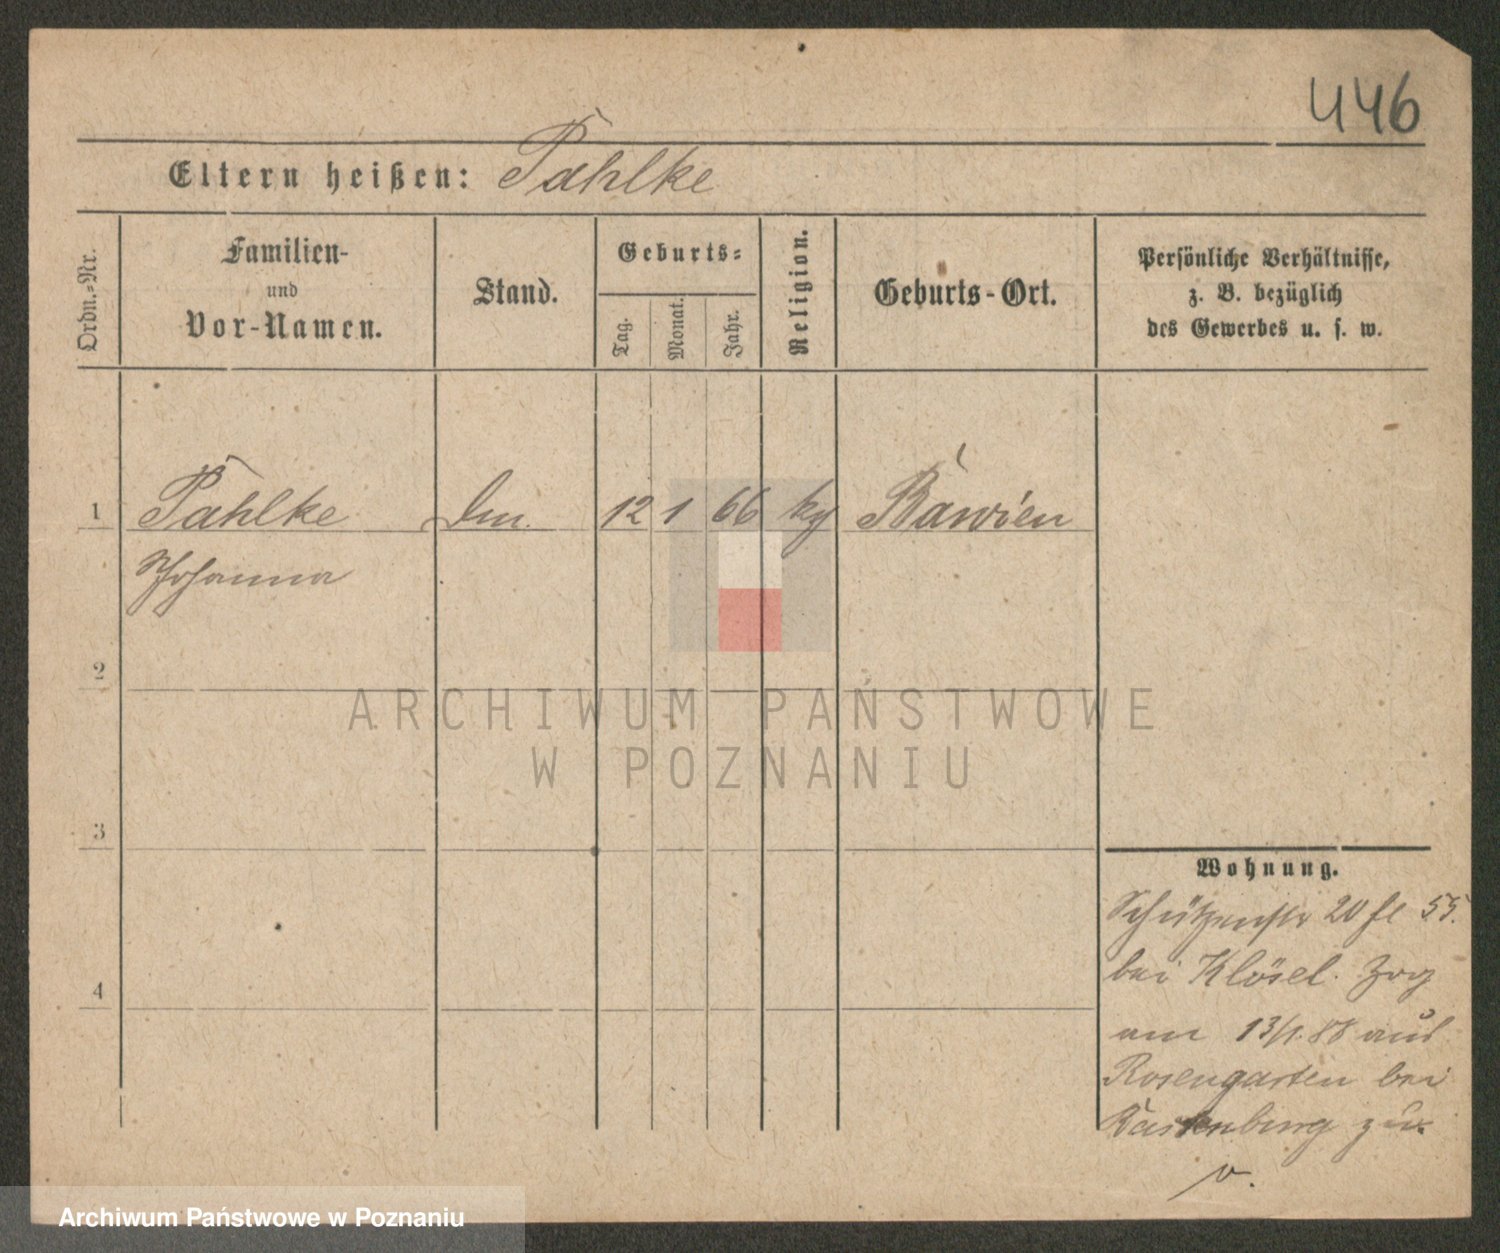 446
Eltern heißen: Pahlke
Ordn.-Nr.
Familien-
und
Vor-Namen.
Stand.
Geburts-
Tag.
Monat.
Jahr.
Religion.
Geburts-Ort.
Persönliche Verhältnisse,
z. B. bezüglich
des Gewerbes u. s. w.
1 Pahlke 12 1 66 Bäwien
Johanna
2
3
4
Wohnung.
Schützenstr 20 55.
bei Klösel. Zog
am 13/1.88 aus
Rosengarten bei
Rastenburg zu.
v.
ARCHIWUM PAŃSTWOWE
W POZNANIU
Archiwum Państwowe w Poznaniu